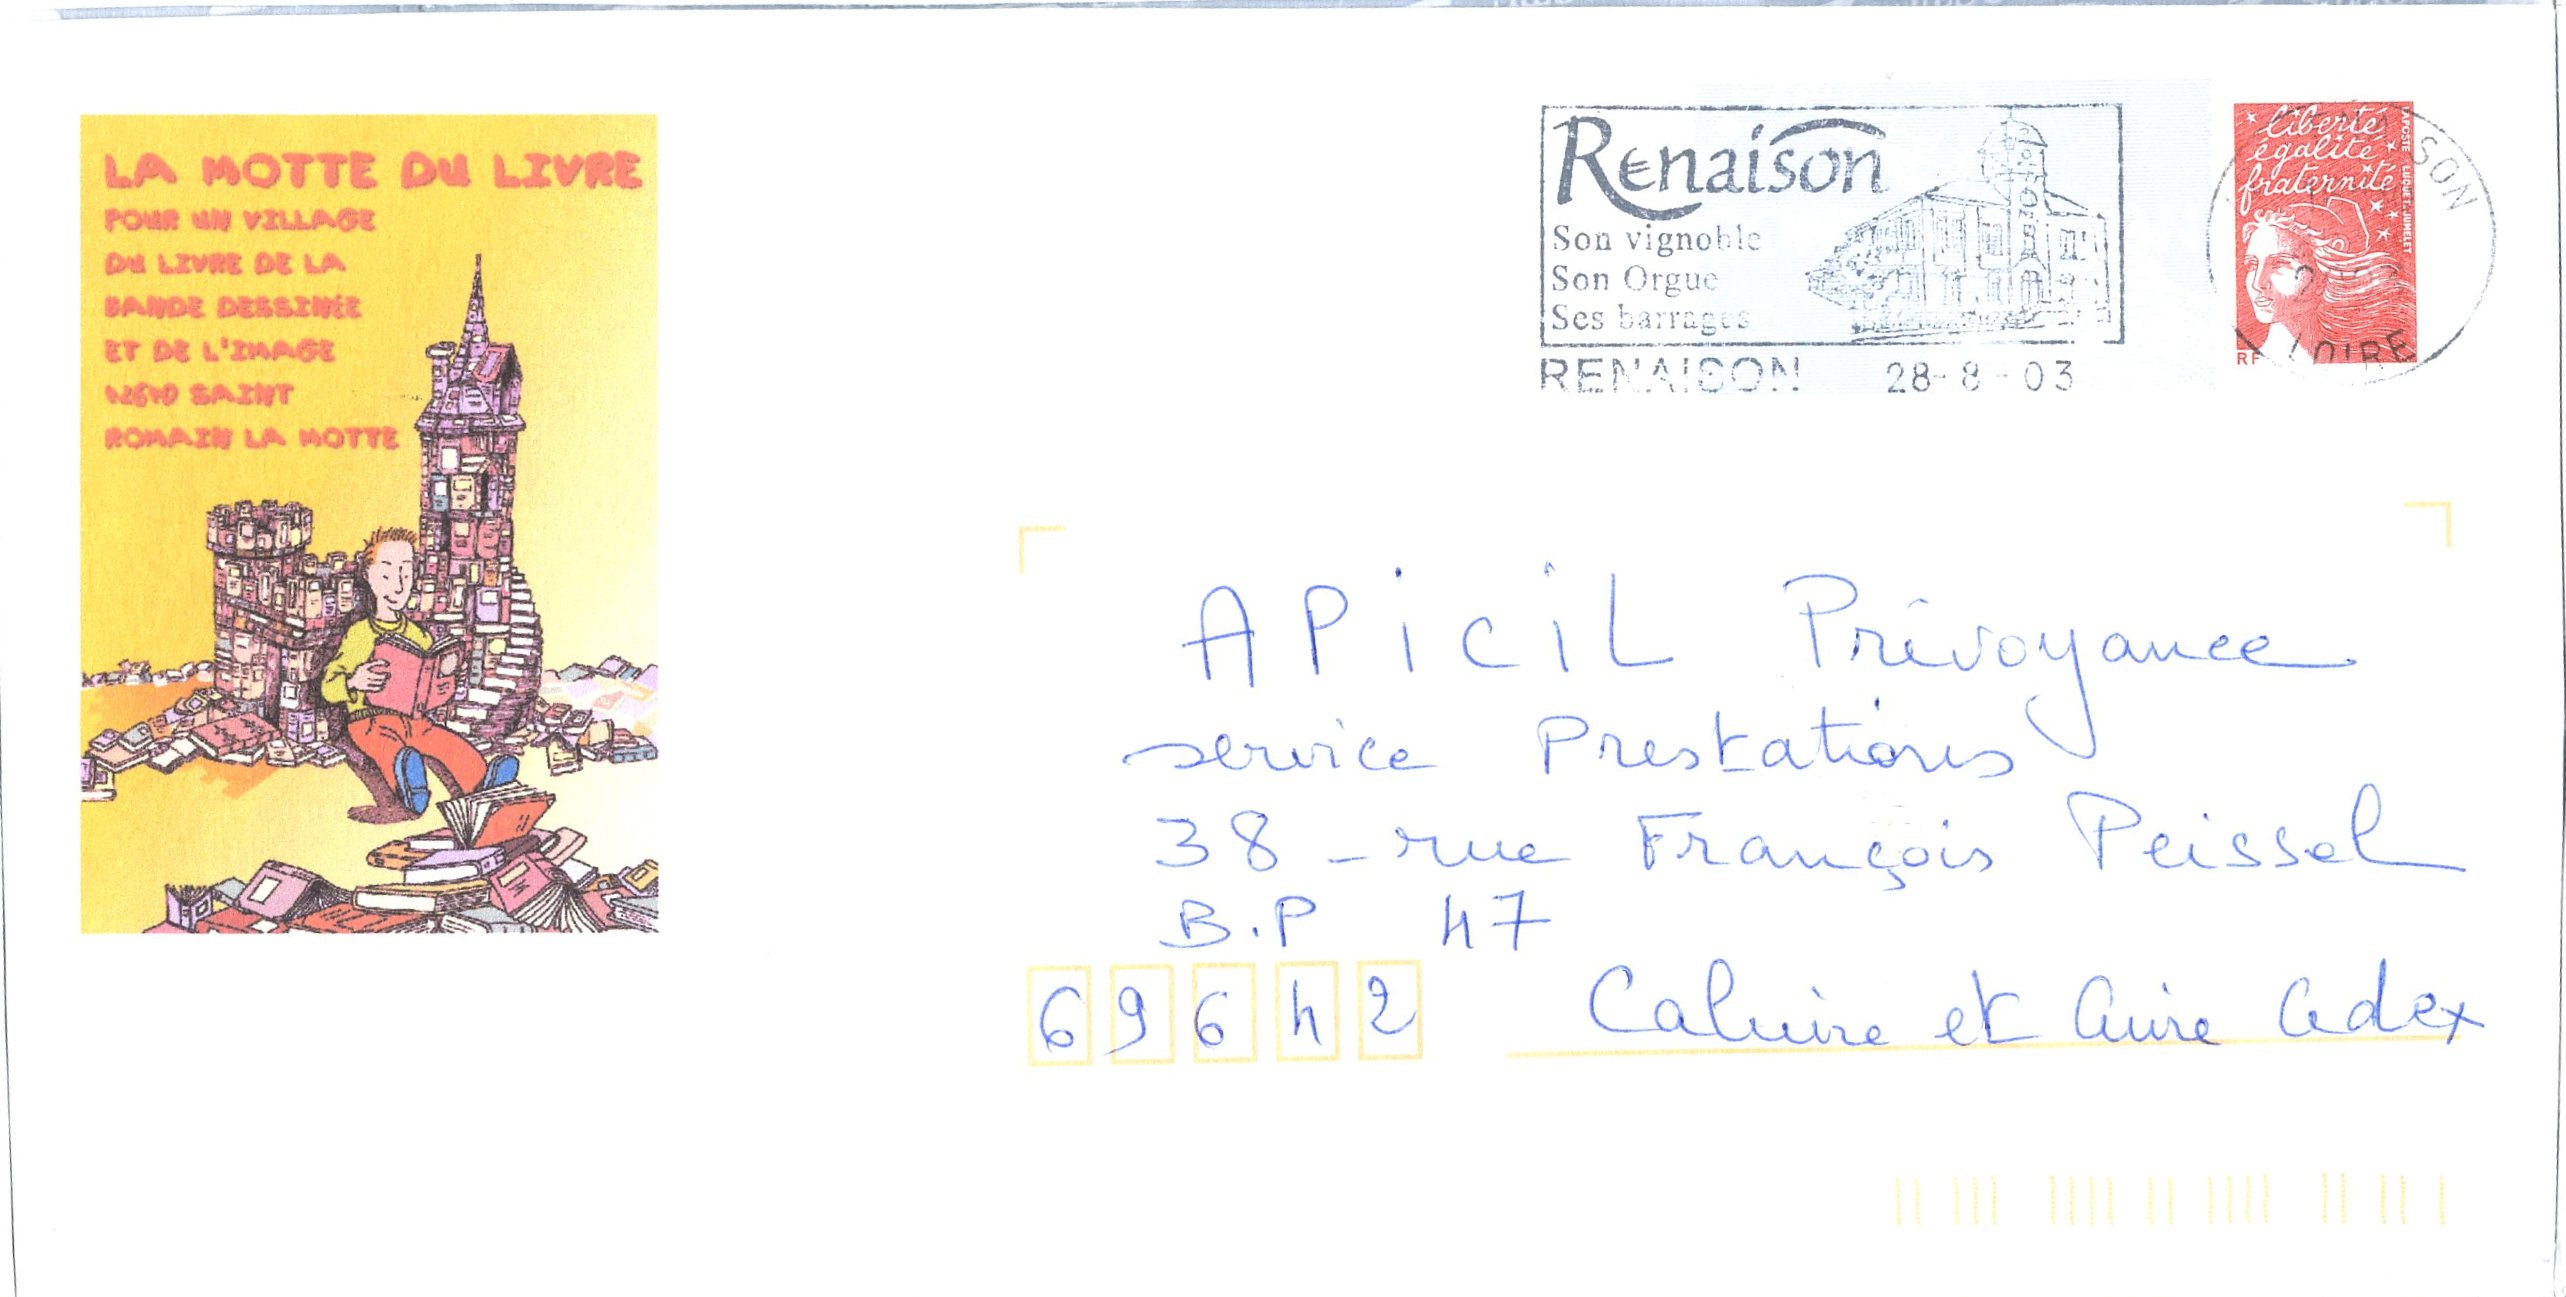 LA MOTTE DU LIVRE
POUR UN VILLAGE
DU LIVRE DE LA
BANDE DESSINÉE
ET DE L'IMAGE
SAINT
ROMAIN LA MOTTE
Renaison
Son vignoble
Son Orgue
Ses barrages
RENAISON 28-8-03
liberté
égalité
fraternité
LA POSTE LUQUET-JUMELET
RF
LOIRE
APiCiL Prévoyance
service Prestations
38 - rue François Peissel
B.P 47
69642 Caluire et Cuire Cedex